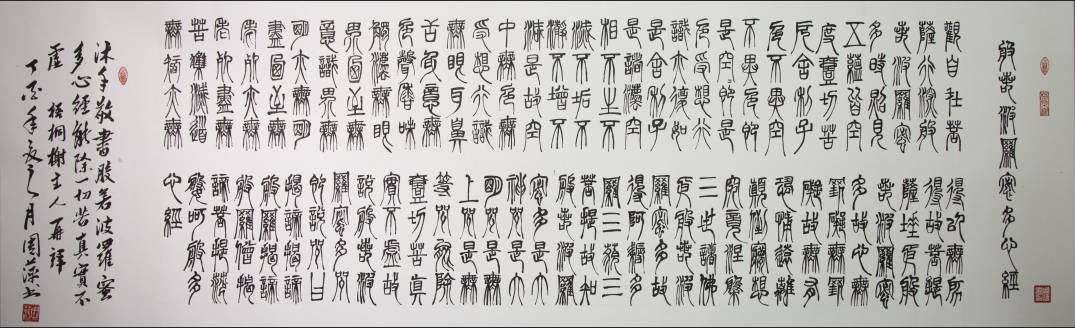 般若波羅蜜多心經
觀自在菩
薩行深般
若波羅蜜
多時照見
五蘊皆空
度壹切苦
厄舍利子
色不異空
不異色即
是空即是
色受想行
識亦復如
是舍利子
是諸法空
相不生不
滅不垢不
淨不增不
減是故空
中無色無
受想行識
無眼耳鼻
舌身意無
色聲香味
觸法無眼
界乃至無
意識界無
明亦無明
盡乃至無
老死亦無
老死盡無
苦集滅道
無智亦無
得以無所
得故菩提
薩埵依般
若波羅蜜
多故心無
罣礙無罣
礙故無有
恐怖遠離
顛倒夢想
究竟涅槃
三世諸佛
依般若波
羅蜜多故
得阿耨多
羅三藐三
菩提故知
般若波羅
蜜多是大
神咒是大
明咒是無
上咒是無
等咒能除
壹切苦真
實不虛故
說般若波
羅蜜多咒
即說咒曰
揭諦揭諦
般羅揭諦
般羅僧揭
諦菩提薩
婆訶般多
心經
沐手敬書般若波羅蜜
多心經能除一切苦真實不
虛 梧桐樹主人再譯
丁酉年夏之月周